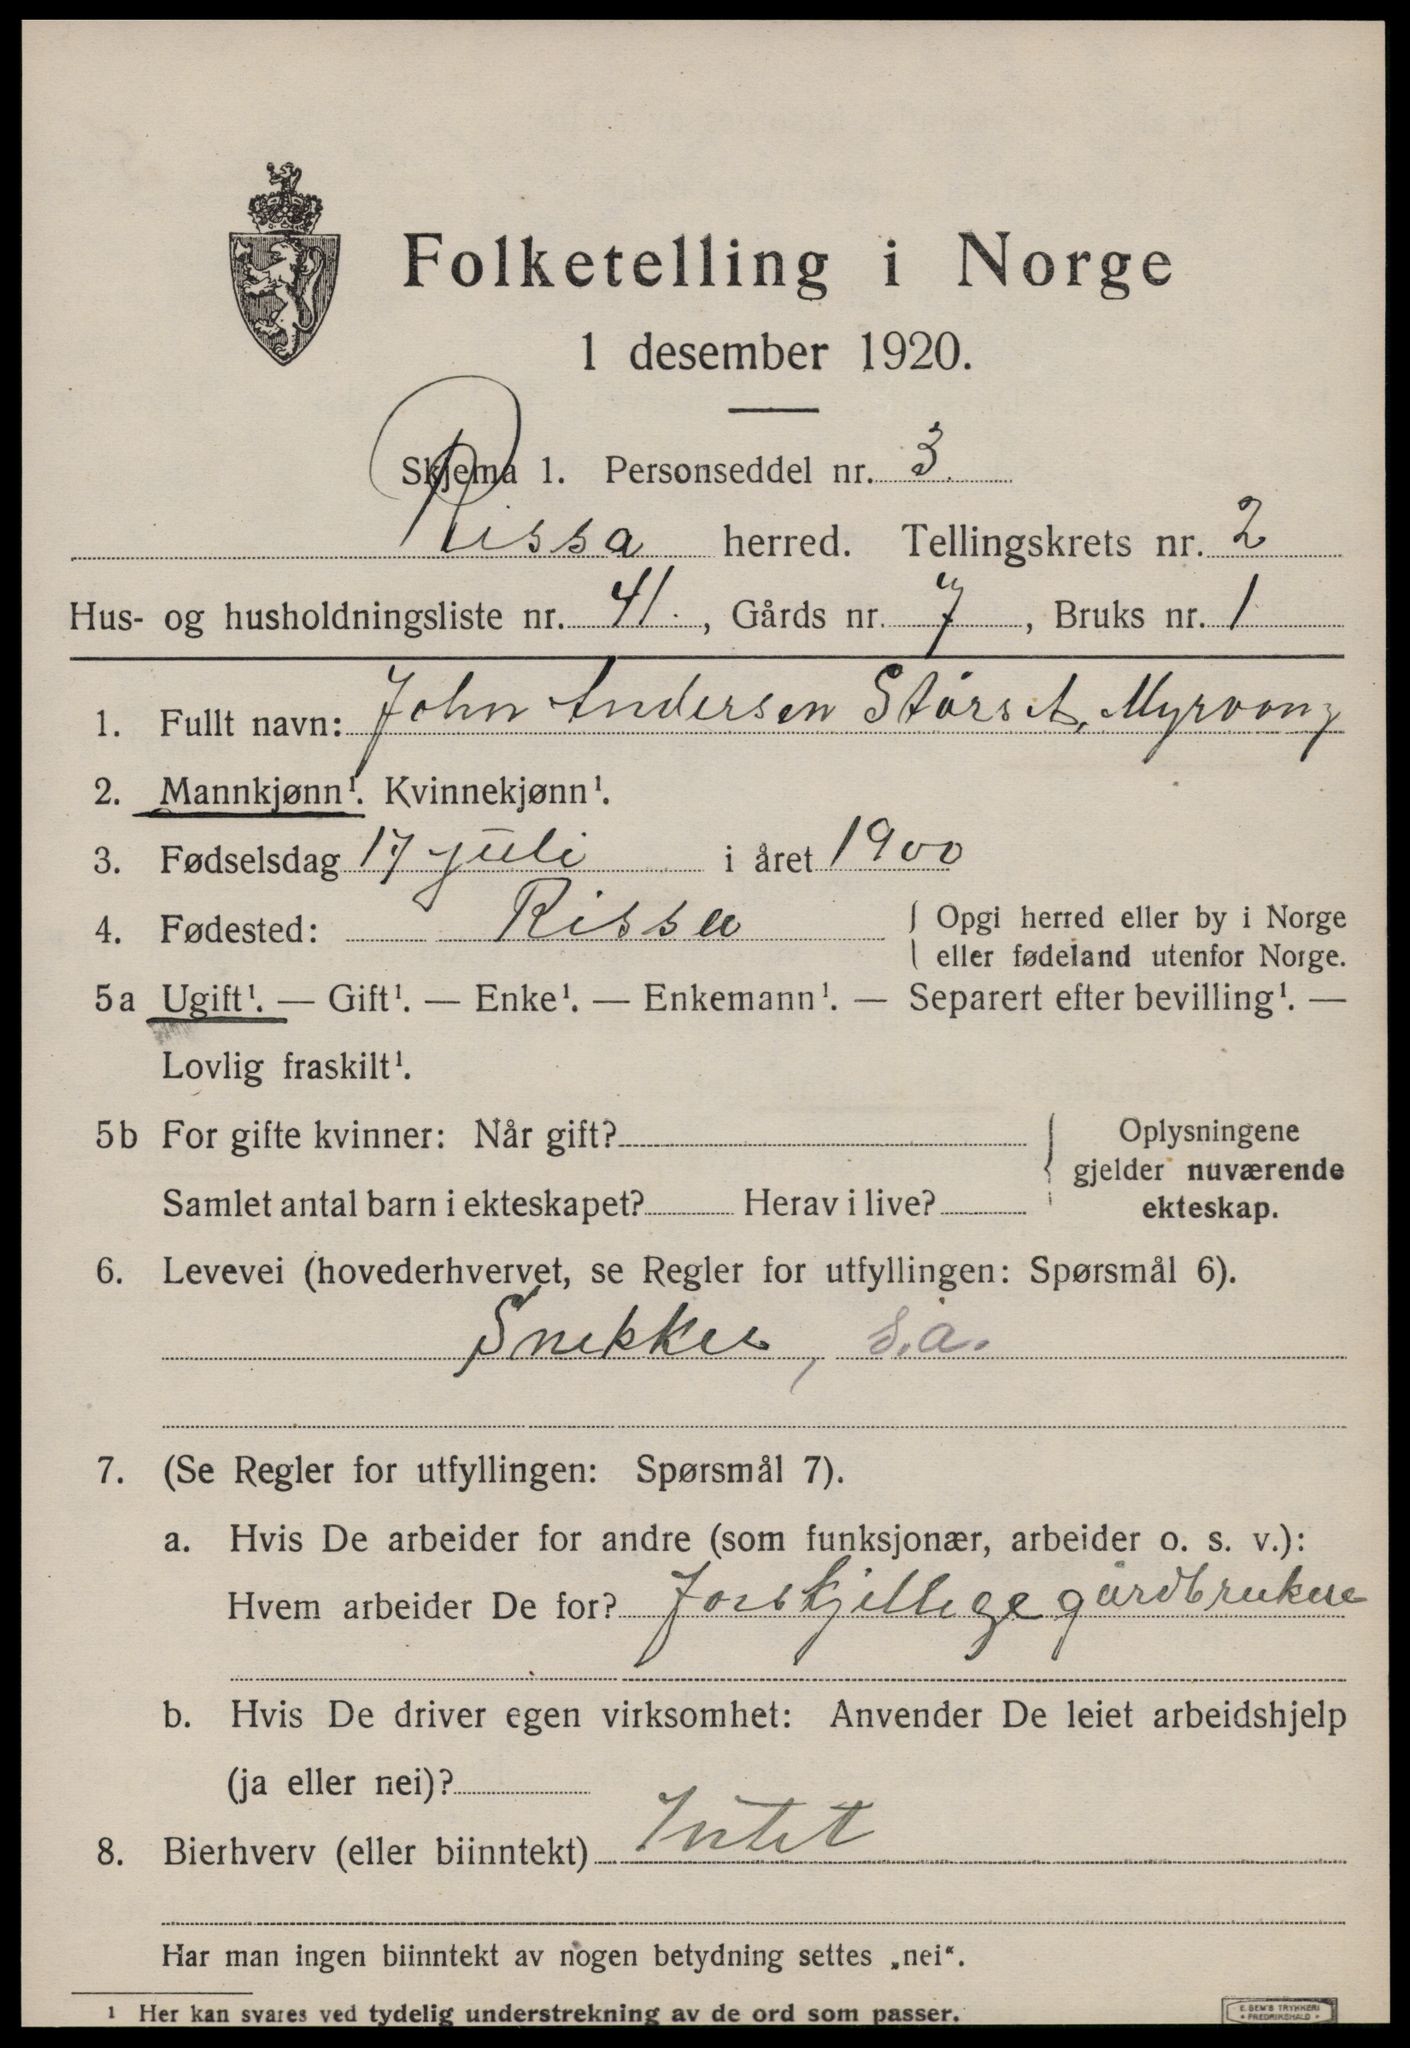 Folketelling i Norge
1 desember 1920.
Skjema 1. Personseddel nr. 3
Rissa herred. Tellingskrets nr. 2
Hus- og husholdningsliste nr. 41., Gårds nr. 7, Bruks nr. 1
1. Fullt navn: John Andersen Størset, Myrvang
2. Mannkjønn¹. Kvinnekjønn¹.
3. Fødselsdag 17 juli i året 1900
4. Fødested: Rissa { Opgi herred eller by i Norge
eller fødeland utenfor Norge.
5a Ugift¹. — Gift¹. — Enke¹. — Enkemann¹. — Separert efter bevilling¹. —
Lovlig fraskilt¹.
5b For gifte kvinner: Når gift? { Oplysningene
gjelder nuværende
Samlet antal barn i ekteskapet? Herav i live? ekteskap.
6. Levevei (hovederhvervet, se Regler for utfyllingen: Spørsmål 6).
Snekker, s.a.
7. (Se Regler for utfyllingen: Spørsmål 7).
a. Hvis De arbeider for andre (som funksjonær, arbeider o. s. v.):
Hvem arbeider De for? Forskjellige gårdbrukere
b. Hvis De driver egen virksomhet: Anvender De leiet arbeidshjelp
(ja eller nei)?
8. Bierhverv (eller biinntekt) Intet
Har man ingen biinntekt av nogen betydning settes „nei“.
¹ Her kan svares ved tydelig understrekning av de ord som passer.
E. SEM'S TRYKKERI
• FREDRIKSHALD •